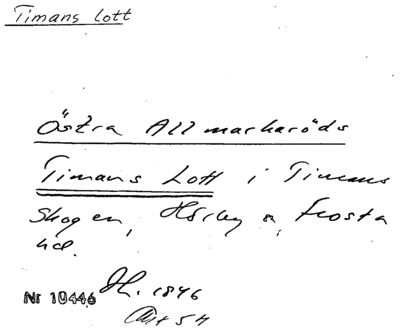 Timans Lott
Östra Allmarkaröds
Timans Lott i Timans
Skogen, Hörby s, Frosta
hd.
Nr 10446 Dh. 1846
Akt 54